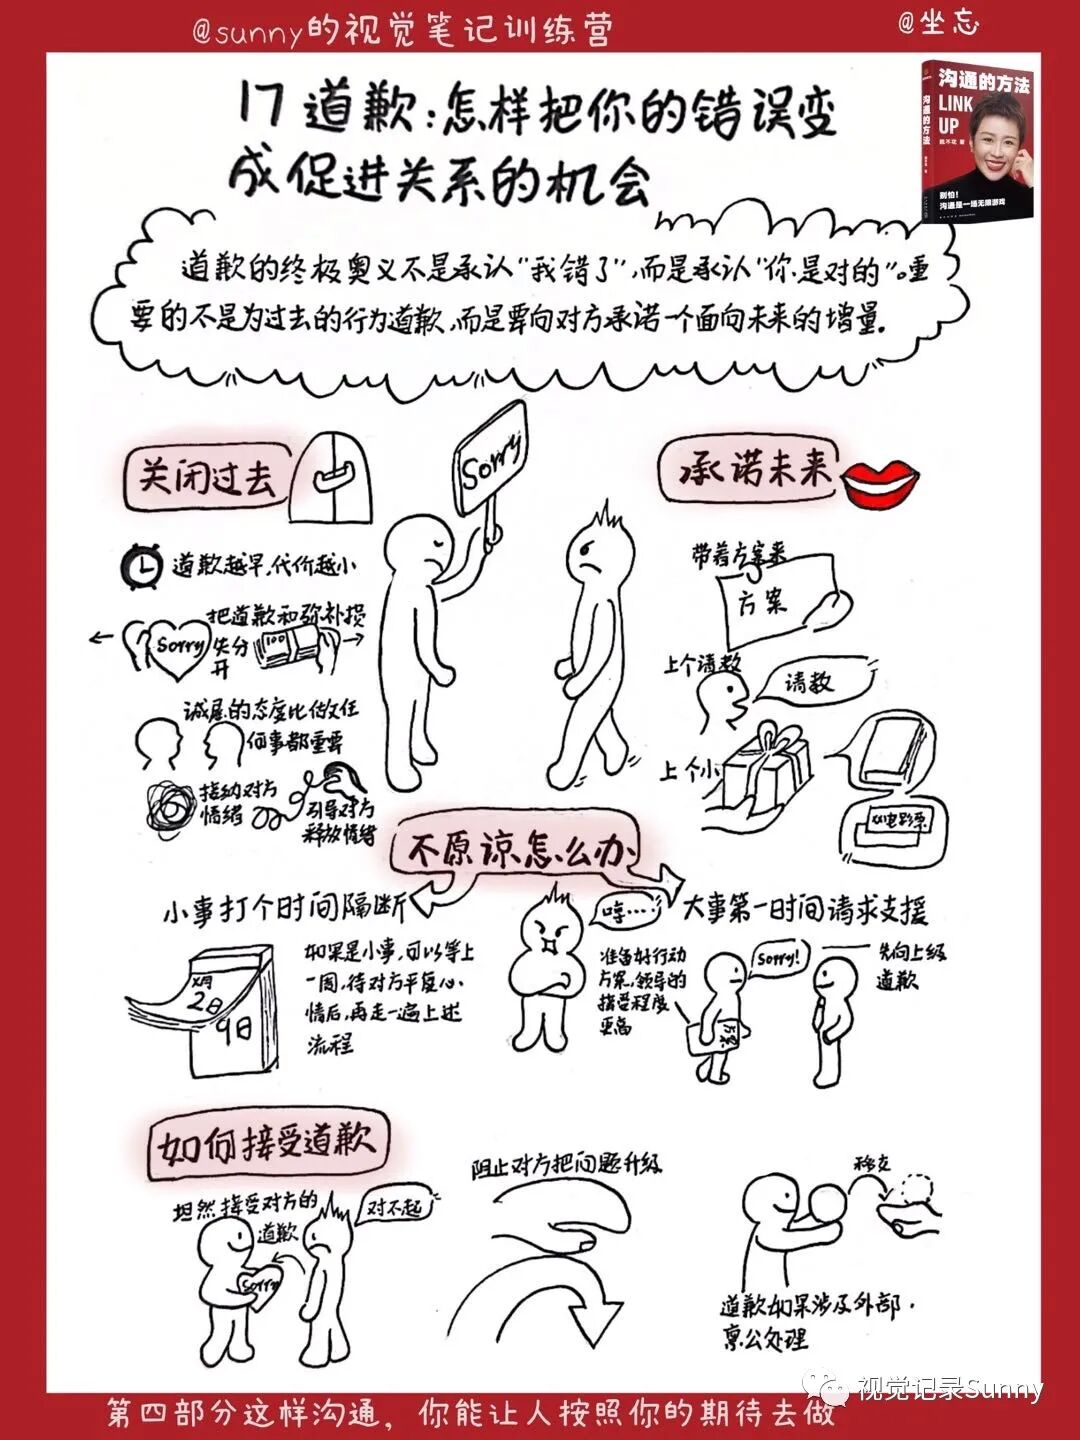 @sunny的视觉笔记训练营
@坐忘
沟通的方法
LINK
UP
脱不花 著
别怕！
沟通是一场无限游戏
沟通的方法
17 道歉:怎样把你的错误变
成促进关系的机会
道歉的终极奥义不是承认"我错了",而是承认"你是对的"。重
要的不是为过去的行为道歉,而是要向对方承诺一个面向未来的增量.
关闭过去
Sorry
承诺未来
道歉越早,代价越小
把道歉和弥补损
失分
开
Sorry
100
诚恳的态度比做任
何事都重要
接纳对方
情绪
引导对方
释放情绪
带着方案来
方案
上个请教
请教
上个小
电影票
不原谅怎么办
小事打个时间隔断
哼……
大事第一时间请求支援
X月
2日
9日
如果是小事,可以等上
一周,待对方平复心
情后,再走一遍上述
流程
准备好行动
方案,领导的
接受程度
更高
Sorry!
方案
先向上级
道歉
如何接受道歉
坦然接受对方的
道歉
对不起
Sorry
阻止对方把问题升级
移交
道歉如果涉及外部,
禀公处理
视觉记录Sunny
第四部分这样沟通，你能让人按照你的期待去做